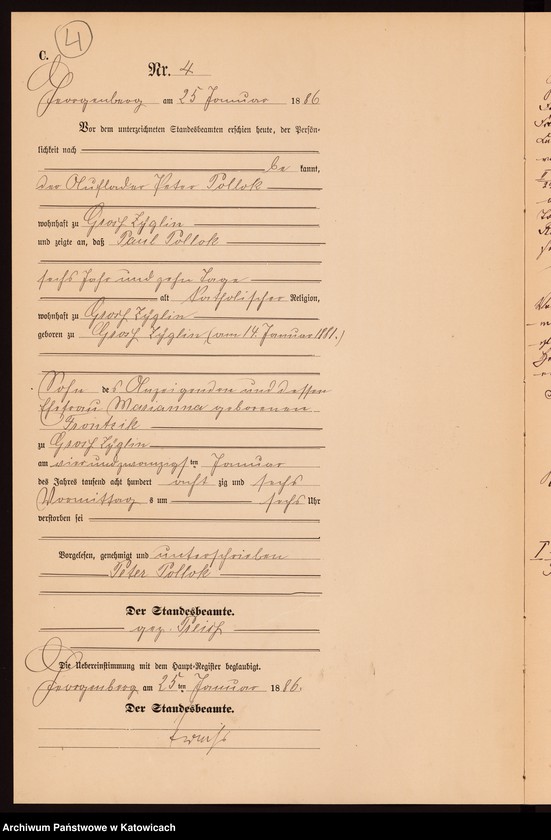 C.
4
Nr. 4
Georgenberg am 25 Januar 1886
Vor dem unterzeichneten Standesbeamten erschien heute, der Persön-
lichkeit nach
be kannt,
der Peter Pollok
wohnhaft zu Groß Zyglin
und zeigte an, daß Paul Pollok
sechs Jahr und zehn Tage
alt Katholischer Religion,
wohnhaft zu Groß Zyglin
geboren zu Groß Zyglin (am 14. Januar 1881.)
Sohn des Anzeigenden und dessen
Ehefrau Marianna geborenen
zu Groß Zyglin
am vierundzwanzigsten Januar
des Jahres tausend acht hundert acht zig und sechs
Vormittag s um sechs Uhr
verstorben sei
Vorgelesen, genehmigt und unterschrieben
Peter Pollok
Der Standesbeamte.
gez.
Die Uebereinstimmung mit dem Haupt-Register beglaubigt.
Georgenberg am 25ten Januar 1886.
Der Standesbeamte.
Archiwum Państwowe w Katowicach